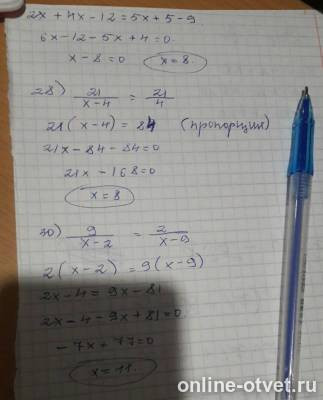 2x + 4x - 12 = 5x + 5 - 9
6x - 12 - 5x + 4 = 0
x - 8 = 0 x = 8.
28) 21/(x-4) = 21/4
21(x-4) = 84 (пропорция)
21x - 84 - 84 = 0
21x - 168 = 0
x = 8
30) 9/(x-2) = 2/(x-9)
2(x-2) = 9(x-9)
2x - 4 = 9x - 81
2x - 4 - 9x + 81 = 0.
-7x + 77 = 0
x = 11.
online-otvet.ru